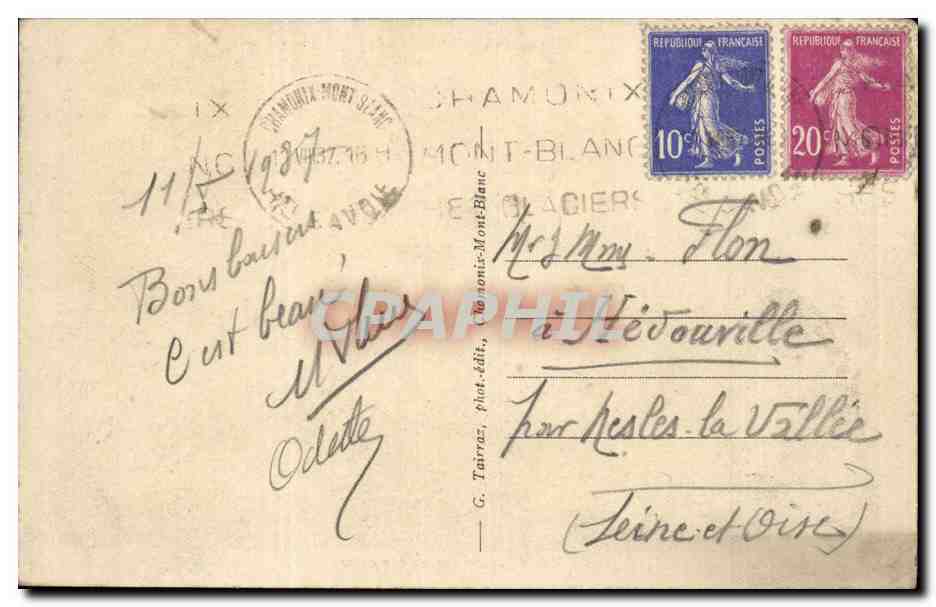 RÉPUBLIQUE FRANÇAISE
10c
POSTES
RÉPUBLIQUE FRANÇAISE
20c
POSTES
CHAMONIX-MONT-BLANC
SAVOIE
IX
NC
CHAMONIX
MONT-BLANC
GLACIERS
1937
Bons baisers
C'est beau
Odette
G. Tairraz, phot.-édit., Chamonix-Mont-Blanc
Mr & Mme Flon
à Hédouville
par Nesles-la Vallée
(Seine-et-Oise)
CPAPHIL